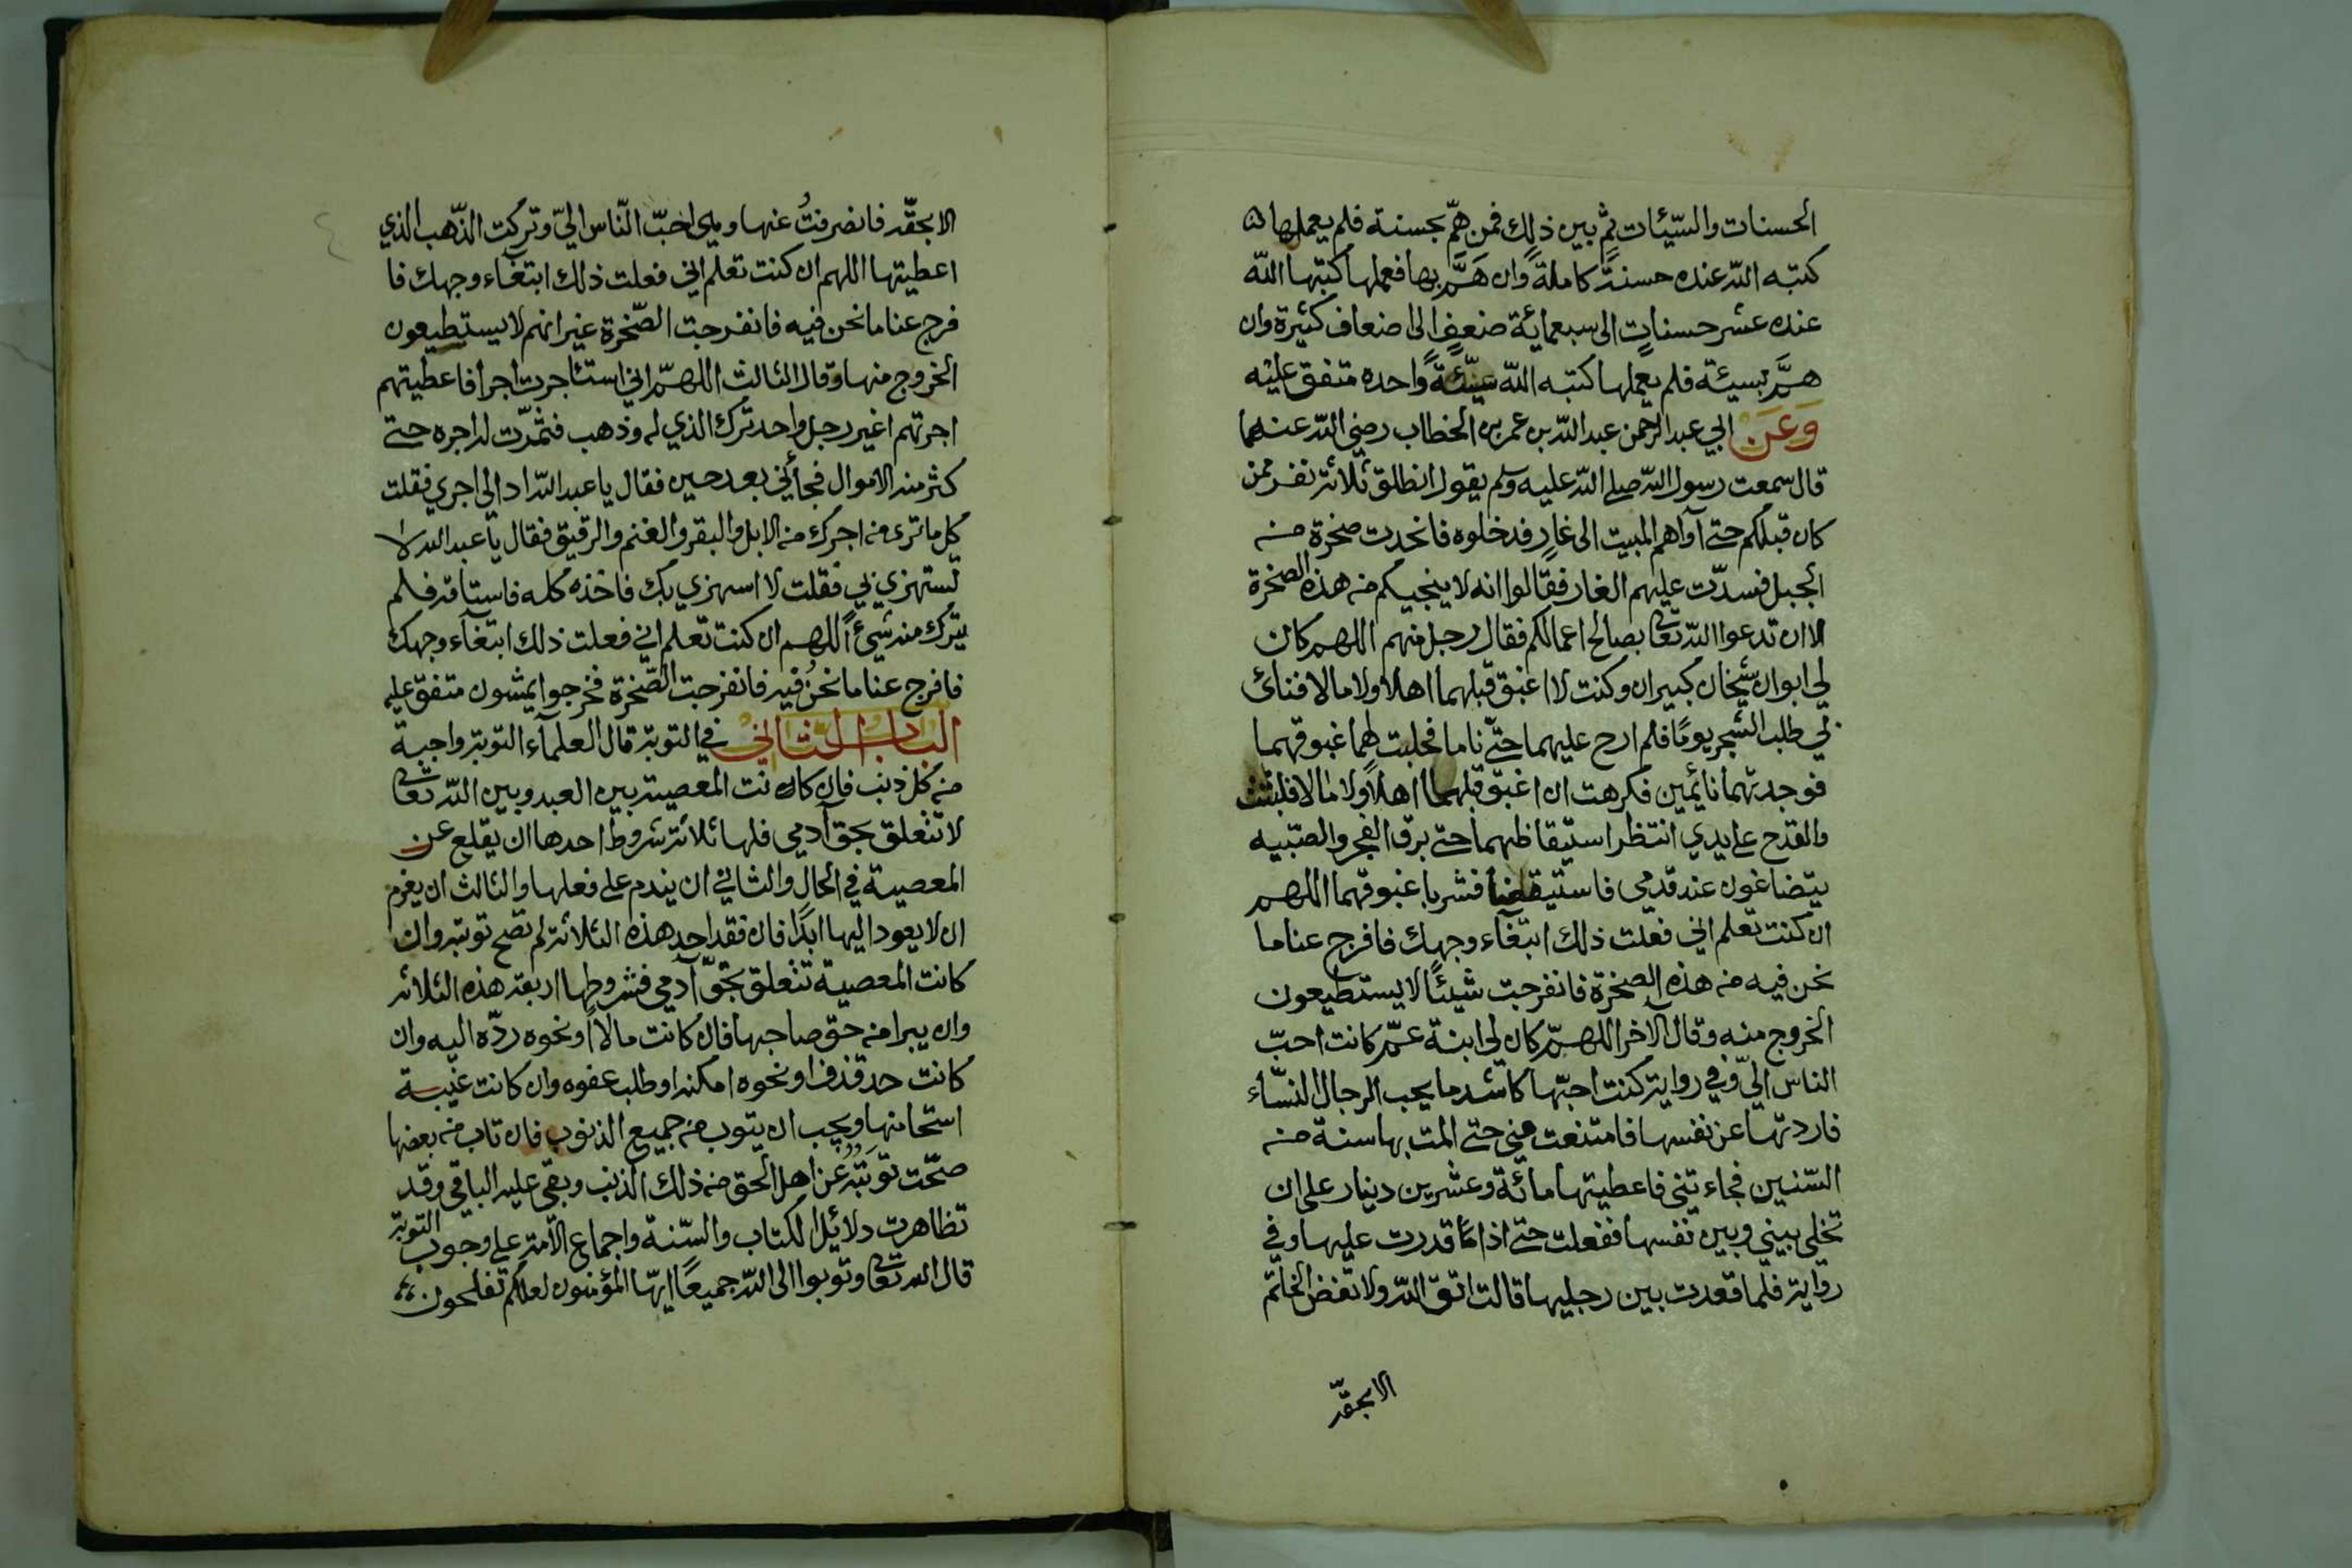 الحسنات والسّيّئات ثمّ بين ذلك فمن همّ بحسنة فلم يعملها
كتبه الله عنده حسنةً كاملةً وان همَّ بها فعملها كتبها الله
عنده عشر حسناتٍ الى سبعمائة ضعفٍ الى اضعاف كثيرة وان
همَّ بسيئة فلم يعملها كتبه الله سيّئةً واحده متفق عليه
وَعَن ابي عبد الرحمن عبد الله بن عمر بن الخطاب رضي الله عنهما
قال سمعت رسول الله صلى الله عليه وسلم يقول انطلق ثلاثة نفر ممن
كان قبلكم حتى آواهم المبيت الى غارٍ فدخلوه فانحدرت صخرة من
الجبل فسدّت عليهم الغار فقالوا انه لا ينجيكم من هذه الصخرة
الا ان تدعوا الله تعالى بصالح اعمالكم فقال رجل منهم اللهم كان
لي ابوان شيخان كبيران وكنت لا اغبق قبلهما اهلاً ولا مالا فنائ
بي طلب الشجر يومًا فلم ارح عليهما حتى ناما فحلبت لهما غبوقهما
فوجدتهما نائمين فكرهت ان اغبق قبلهما اهلاً ولا مالا فلبثت
والقدح على يدي انتظر استيقاظهما حتى برق الفجر والصّبيه
يتضاغون عند قدمي فاستيقضا فشربا غبوقهما اللهم
ان كنت تعلم اني فعلت ذلك ابتغاء وجهك فافرج عنا ما
نحن فيه من هذه الصخرة فانفرجت شيئًا لا يستطيعون
الخروج منه وقال الآخر اللهمّ كان لي ابنة عمّ كانت احبّ
الناس اليّ وفي رواية كنت احبّها كاشد ما يحب الرجال النسّاء
فاردتها عن نفسها فامتنعت مني حتى المت بها سنة من
السّنين فجاءتني فاعطيتها مائة وعشرين دينار على ان
تخلي بيني وبين نفسها ففعلت حتى اذا قدرت عليها وفي
رواية فلما قعدت بين رجليها قالت اتّق الله ولا تفض الخاتم
الا بحقّه
الا بحقّه فانصرفتُ عنها وهي احبّ النّاس اليّ وتركت الذّهب الذي
اعطيتها اللهم ان كنت تعلم اني فعلت ذلك ابتغاء وجهك فا
فرج عنا ما نحن فيه فانفرجت الصّخرة غير انهم لا يستطيعون
الخروج منها وقال الثالث اللهمّ اني استئاجرت اجرا فاعطيتهم
اجرتهم اغير رجل واحد ترك الذي له وذهب فثمّرت له اجره حتى
كثر منه الاموال فجأني بعد حين فقال يا عبد الله اد الي اجري فقلت
كل ما ترى من اجرك من الابل والبقر والغنم والرقيق فقال يا عبد الله لا
تستهزي بي فقلت لا اسهزي بك فاخذه كله فاستاقه فلم
يترك منه شيئاً اللهم ان كنت تعلم اني فعلت ذلك ابتغاء وجهك
فافرج عنا ما نحنُ فيه فانفرجت الصّخرة فخرجوا يمشون متفق عليه
الباب الثاني في التوبة قال العلمآء التوبة واجبة
من كل ذنب فان كانت المعصية بين العبد وبين الله تعالى
لا تتعلق بحق آدمي فلها ثلاثة شروط احدها ان يقلع عن
المعصية في الحال والثاني ان يندم على فعلها والثالث ان يعزم
ان لا يعود اليها ابدًا فان فقد احد هذه الثلاثة لم تصح توبته وان
كانت المعصية تتعلق بحقّ آدمي فشروطها اربعة هذه الثلاثه
وان يبرا من حق صاحبها فان كانت مالاً او نحوه ردّه اليه وان
كانت حد قذف او نحوه امكنه او طلب عفوه وان كانت غيبة
استحا منها ويجب ان يتوب من جميع الذنوب فان تاب من بعضها
صحّت توبَتُهُ عن اهل الحق من ذلك الذنب وبقي عليه الباقي وقد
تظاهرت دلائل الكتاب والسّنة واجماع الأمة على وجوب التوبة
قال الله تعالى وتوبوا الى الله جميعًا ايّها المؤمنون لعلكم تفلحون